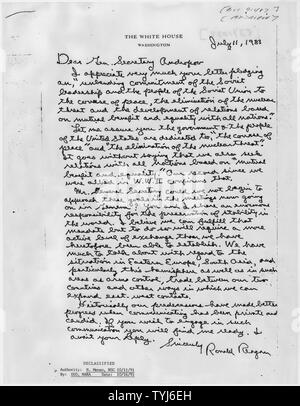 THE WHITE HOUSE
WASHINGTON
July 11, 1983
Dear Gen. Secretary Andropov
I appreciate very much your letter pledging
an "unbending commitment of the Soviet
leadership and the people of the Soviet Union to
the course of peace, the elimination of the nuclear
threat and the development of relations based
on mutual benefit and equality with all nations."
Let me assure you the government & the people
of the United States are dedicated to, "the course of
peace" and "the elimination of the nuclear threat."
It goes without saying that we also seek
relations with all nations based on "mutual
benefit and equality." Our record since we
were allied in W.W.II confirms that.
Mr. General Secretary could we not begin to
approach these goals in the meetings now going
on in Geneva? You and I share an enormous
responsibility for the preservation of stability in
the world. I believe we can fulfill that
mandate but to do so will require a more
active level of exchange than we have
heretofore been able to establish. We have
much to talk about with regard to the
situation in Eastern Europe, South Asia, and
particularly this hemisphere as well as in such
areas as arms control, trade between our two
countries and other ways in which we can
expand east-west contacts.
Historically our predecessors have made better
progress when communicating has been private and
candid. If you wish to engage in such
communication you will find me ready. I
await your reply.
Sincerely
Ronald Reagan
DECLASSIFIED
alamy